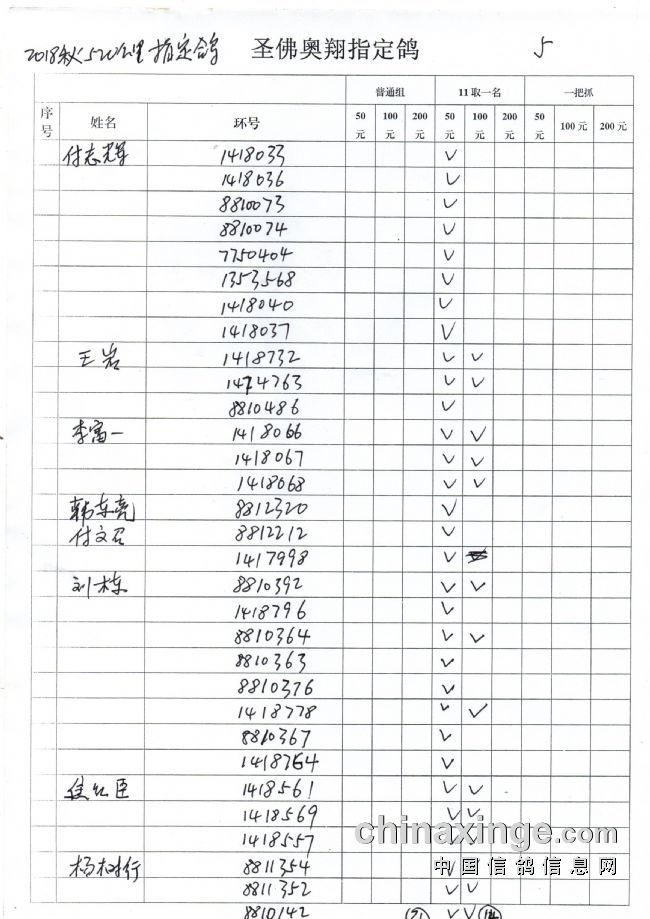 2018秋520公里指定鸽 圣佛奥翔指定鸽 5
普通组 11取一名 一把抓
序号 姓名 环号 50元 100元 200元 50元 100元 200元 50元 100元 200元
付志辉 1418033 ✓
1418036 ✓
8810073 ✓
8810074 ✓
7750404 ✓
1353568 ✓
1418040 ✓
1418037 ✓
王岩 1418732 ✓ ✓
1474763 ✓ ✓
8810486 ✓
李富一 1418066 ✓ ✓
1418067 ✓ ✓
1418068 ✓ ✓
韩东亮 8812320 ✓
付文召 8812212 ✓
1417998 ✓
刘栋 8810392 ✓ ✓
1418796 ✓
8810364 ✓ ✓
8810363 ✓
8810376 ✓
1418778 ✓ ✓
8810367 ✓
1418764 ✓
侯红臣 1418561 ✓ ✓
1418569 ✓ ✓
1418557 ✓ ✓
杨树行 8811354 ✓
8811352 ✓ ✓
8810142 ✓ ✓
chinaxinge.com
中国信鸽信息网